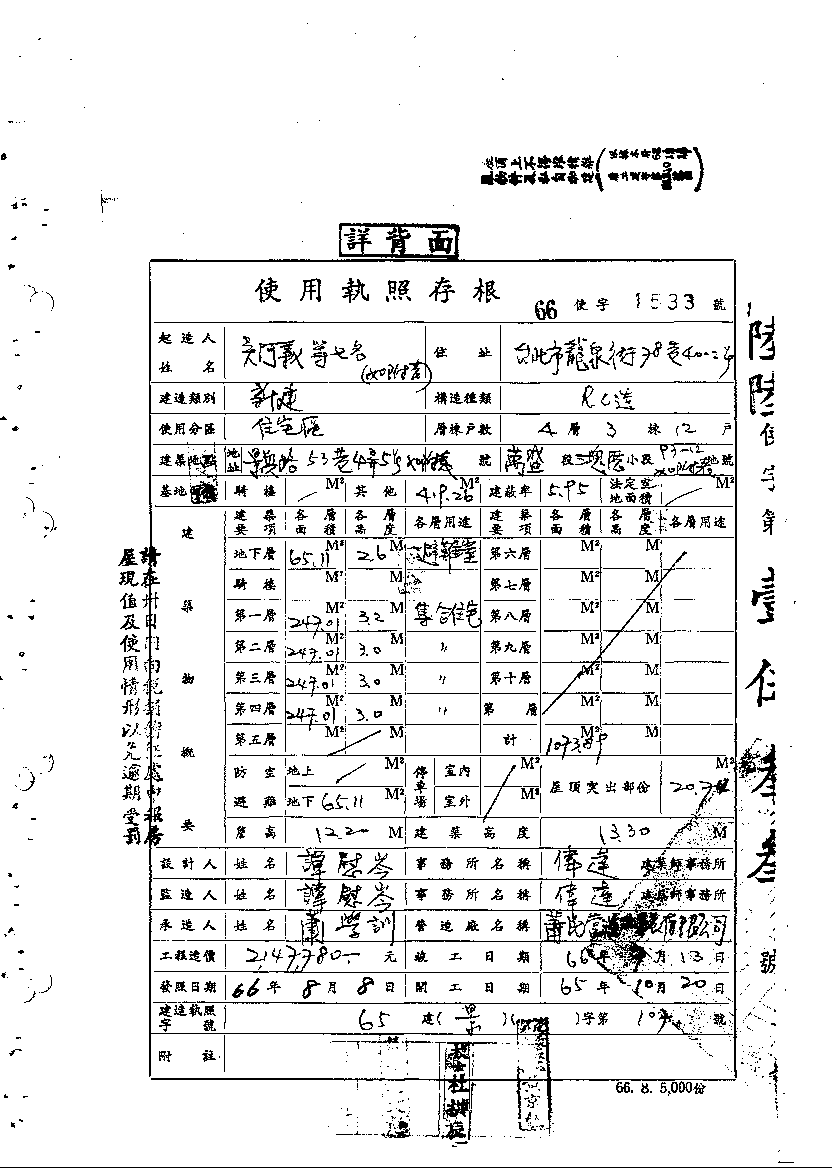 詳背面
使用執照存根
66 使字 1533 號
起造人姓名 吳阿義等七名 住址 台北市龍泉街78巷40之2號
建造類別 新建 構造種類 RC造
使用分區 住宅區 層棟戶數 4層3棟12戶
建築地點 地址 景興路53巷4弄5號 號 萬盛段 小段 93-12 地號
基地面積 騎樓 M² 其他 419.26 M² 建蔽率 5.95 法定空地面積 M²
建築物概要 建築要項 各層面積 各層高度 各層用途 建築要項 各層面積 各層高度 各層用途
地下層 65.11 M² 2.6 M 避難室 第六層 M² M
騎樓 M² M 第七層 M² M
第一層 247.01 M² 3.2 M 集合住宅 第八層 M² M
第二層 247.01 M² 3.0 M 〃 第九層 M² M
第三層 247.01 M² 3.0 M 〃 第十層 M² M
第四層 247.01 M² 3.0 M 〃 第 層 M² M
第五層 M² M 計 M² M
防空避難 地上 M² 停車場 室內 M² 屋頂突出部份 M²
地下 65.11 M² 室外 M²
簷高 12.20 M 建築高度 13.30 M
設計人 姓名 譚慰岑 事務所名稱 偉達 建築師事務所
監造人 姓名 譚慰岑 事務所名稱 偉達 建築師事務所
承造人 姓名 蕭學訓 營造廠名稱 有限公司
工程造價 2,147,780.- 元 竣工日期 66年 月13日
發照日期 66年8月8日 開工日期 65年10月20日
建造執照字號 65 建(景)( )字第 號
附註
66. 8. 5,000份
請在卅日內向稅捐
屋現值及使用情形以免逾期受罰
陸陸使字第壹伍叁叁號